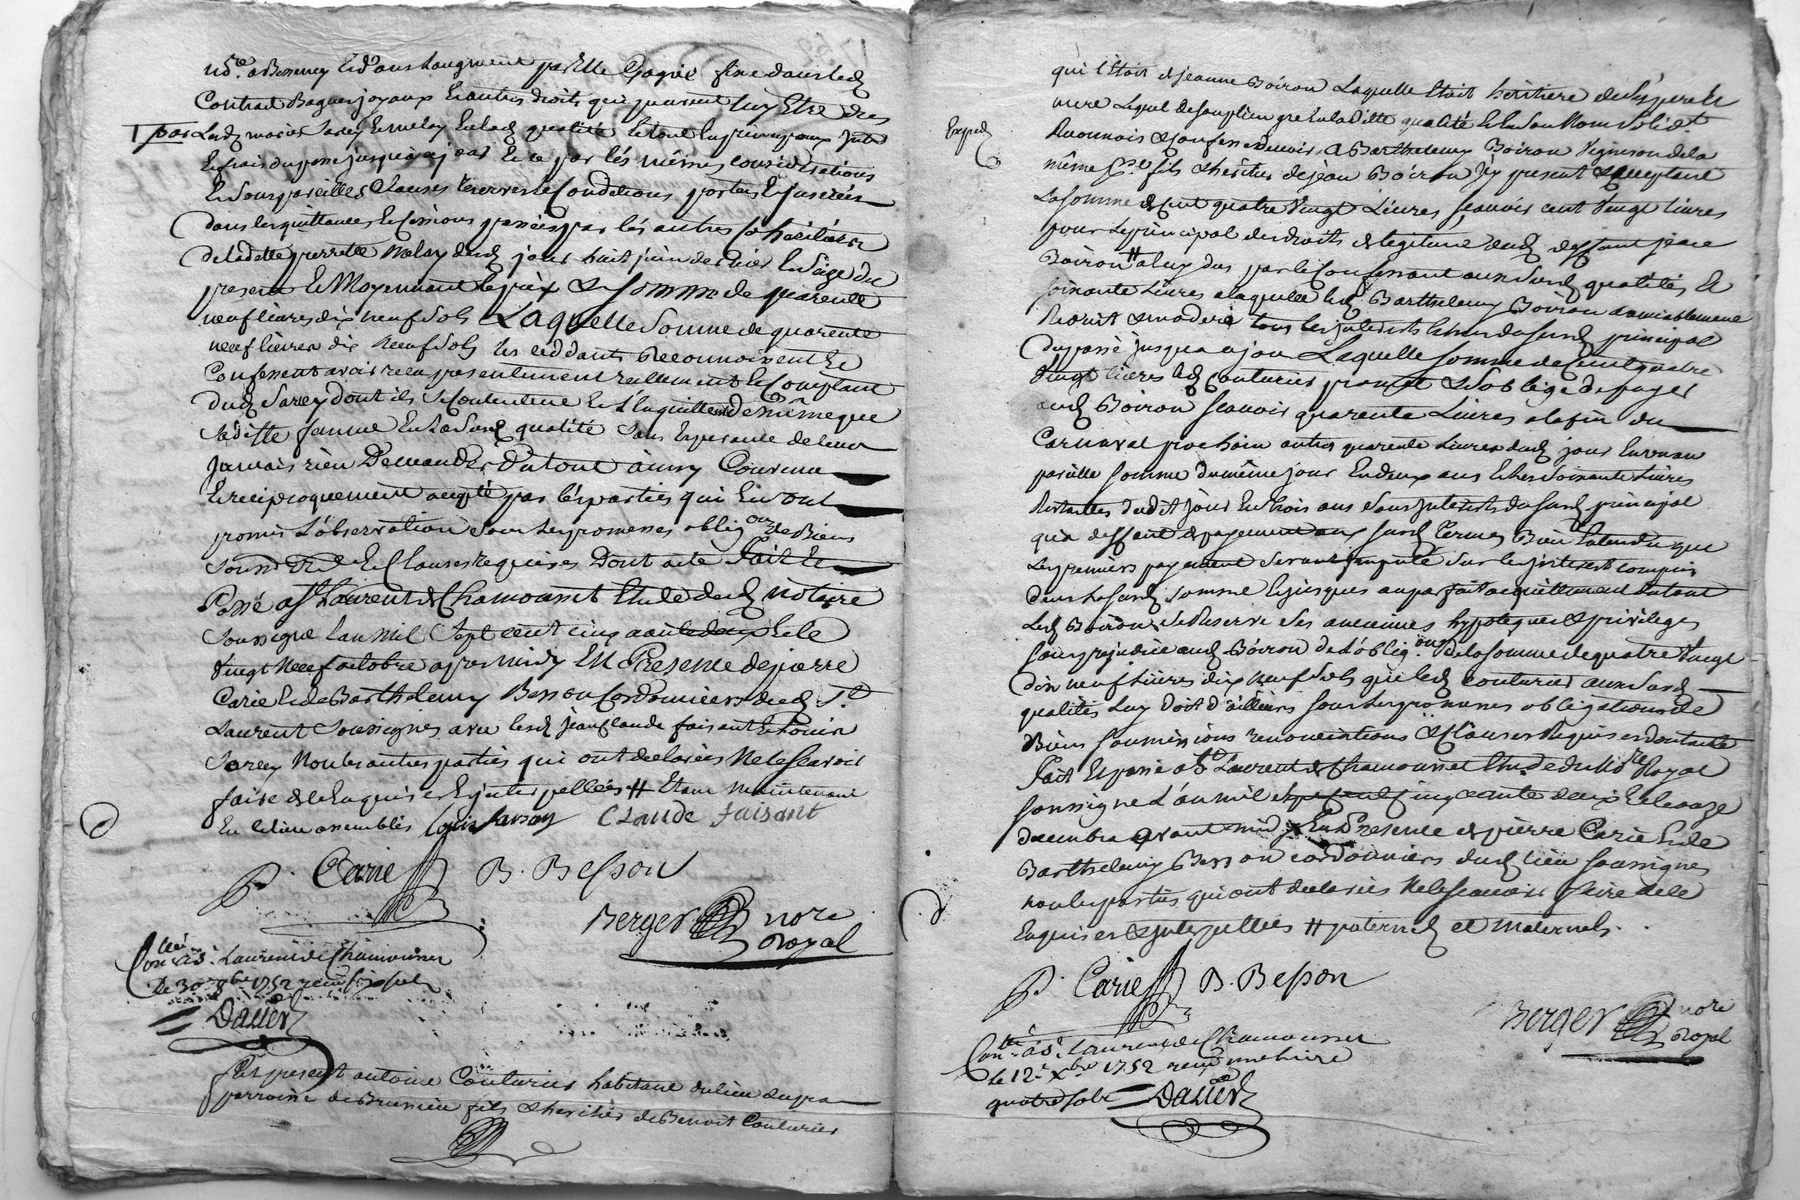 Contrad Bagues joyaux Et autres droits qui peuvent luy Etre deus
par
Et frais du passé jusques a ce jour Et ce par les mêmes considerations
Et sous pareilles Clauses reserves Et Conditions portées Et inserées
dans les quittances Et Cessions passées par les autres Cohéritiers
de laditte pierrette Melay dud. jour huit juin dernier Et seize du
present Et Moyennant le prix Et somme de quarente
neuf livres dix neuf sols Laquelle somme de quarente
neuf livres dix neuf sols les ceddants Reconnoissent Et
Confessent avoir reçu presentement reellement Et Comptant
dud. Sarcey dont ils se Contentent Et L'en quittent de même que
saditte femme En La susd. qualité sans Esperance de leur
Jamais rien Demander Du tout ainsy Convenu
Et reciproquement accepté par les parties qui En ont
promis L'observation sous les promesses oblig.ons de Biens
Et Clauses requises Dont acte Fait Et
Passé a St Laurent de Chamousset Etude dud. notaire
soussigné L'an mil Sept cent cinquante deux Et le
vingt Neuf octobre apres midy En Presence de pierre
Carie Et de Barthelemy Besson Cordonniers dud. St
Laurent soussignés avec lesd. jean claude faisant Et Louis
Sarcey Non les autres parties qui ont declarées Ne le scavoir
faire de ce Enquises Et interpellées # Etant Maintenant
En ce lieu assemblés Claude faisant
P. Carie B. Besson
Berger nore
Royal
Con.llé a St Laurent de Chamousset
Le 30e 8bre 1752 reçu six sols
Davier
Fut present antoine Couturier habitant du lieu Et
parroisse de Brussieu fils Et heritier de Benoit Couturier
qui Etoit de jeanne Boiron Laquelle Etoit héritiere de ses pere Et
mere Lequel de son plein gre En laditte qualité Et En son Nom
Exped.
Reconnois Et Confesse devoir a Barthelemy Boiron vigneron de la
même p.sse fils Et heritier de jean Boiron icy present Et acceptant
La somme de Cent quatre vingt Livres scavoir cent vingt livres
pour Le principal des droits de legitime dud. deffunt jean
Boiron # a luy dus par le Confessant aux susd. qualités Et
soixante Livres a laquelle led. Barthelemy Boiron amiablement
Reduit Et modere tous les interests Echus du susd. principal
du passé jusqua ce jour Laquelle somme de Cent quatre
vingt livres led. Couturier promet Et s'oblige de payer
aud. Boiron scavoir quarente Livres a la fin du
Carnaval prochain autres quarente Livres dud. jour En un an
pareille somme du même jour En deux ans Et les soixante Livres
Restantes dudit jour En trois ans sans interests du susd. principal
qu'a deffaut de payement aux susd. Termes Bien Entendu que
Les premiers payements seront imputé sur les interest compris
dans La susd. somme Et jusques au parfait acquittement du tout
Led. Boiron se Reserve ses anciennes hypoteques Et privileges
sans prejudice aud. Boiron de l'oblig.on de la somme de quatre vingt
dix neuf Livres dix Neuf sols que led. couturier aux susd.
qualités Luy doit d'ailleurs sous les promesses obligations de
Biens soumissions renonciations Et Clauses Requises dont acte
Fait Et passé a St Laurent de Chamousset Etude du No.re Royal
soussigné L'an mil sept cent cinquante deux Et le onze
decembre avant midy En Presence de pierre Carie Et de
Barthelemy Besson cordonniers dud. lieu soussignes
non les parties qui ont declarées Ne le scavoir faire de ce
Enquises Et interpellées # paternels et maternels.
P. Carie B. Besson
Berger nore
Royal
Con.llé a St Laurent de Chamousset
le 12e Xbre 1752 reçu une livre
quatre sols Davier